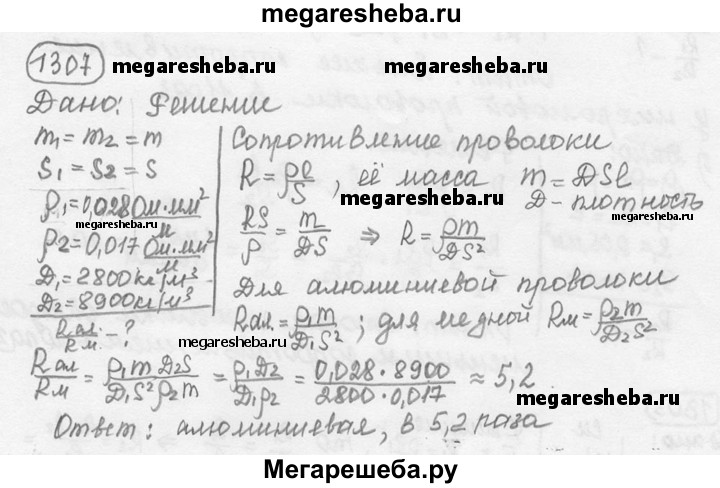 megaresheba.ru
1307 megaresheba.ru megaresheba.ru
Дано: Решение
m₁ = m₂ = m
S₁ = S₂ = S
ρ₁ = 0,028 Ом·мм²/м
ρ₂ = 0,017 Ом·мм²/м
D₁ = 2800 кг/м³
D₂ = 8900 кг/м³
Rал/Rм - ?
Сопротивление проволоки
R = ρl/S, её масса m = DSl
megaresheba.ru D - плотность
RS/ρ = m/DS ⇒ R = ρm/DS²
megaresheba.ru
Для алюминиевой проволоки
Rал = ρ₁m/D₁S²; для медной Rм = ρ₂m/D₂S²
megaresheba.ru
Rал/Rм = ρ₁m D₂S/D₁S²ρ₂m = ρ₁D₂/D₁ρ₂ = 0,028·8900/2800·0,017 ≈ 5,2
megaresheba.ru
Ответ: алюминиевая, в 5,2 раза
megaresheba.ru
Мегарешеба.ру